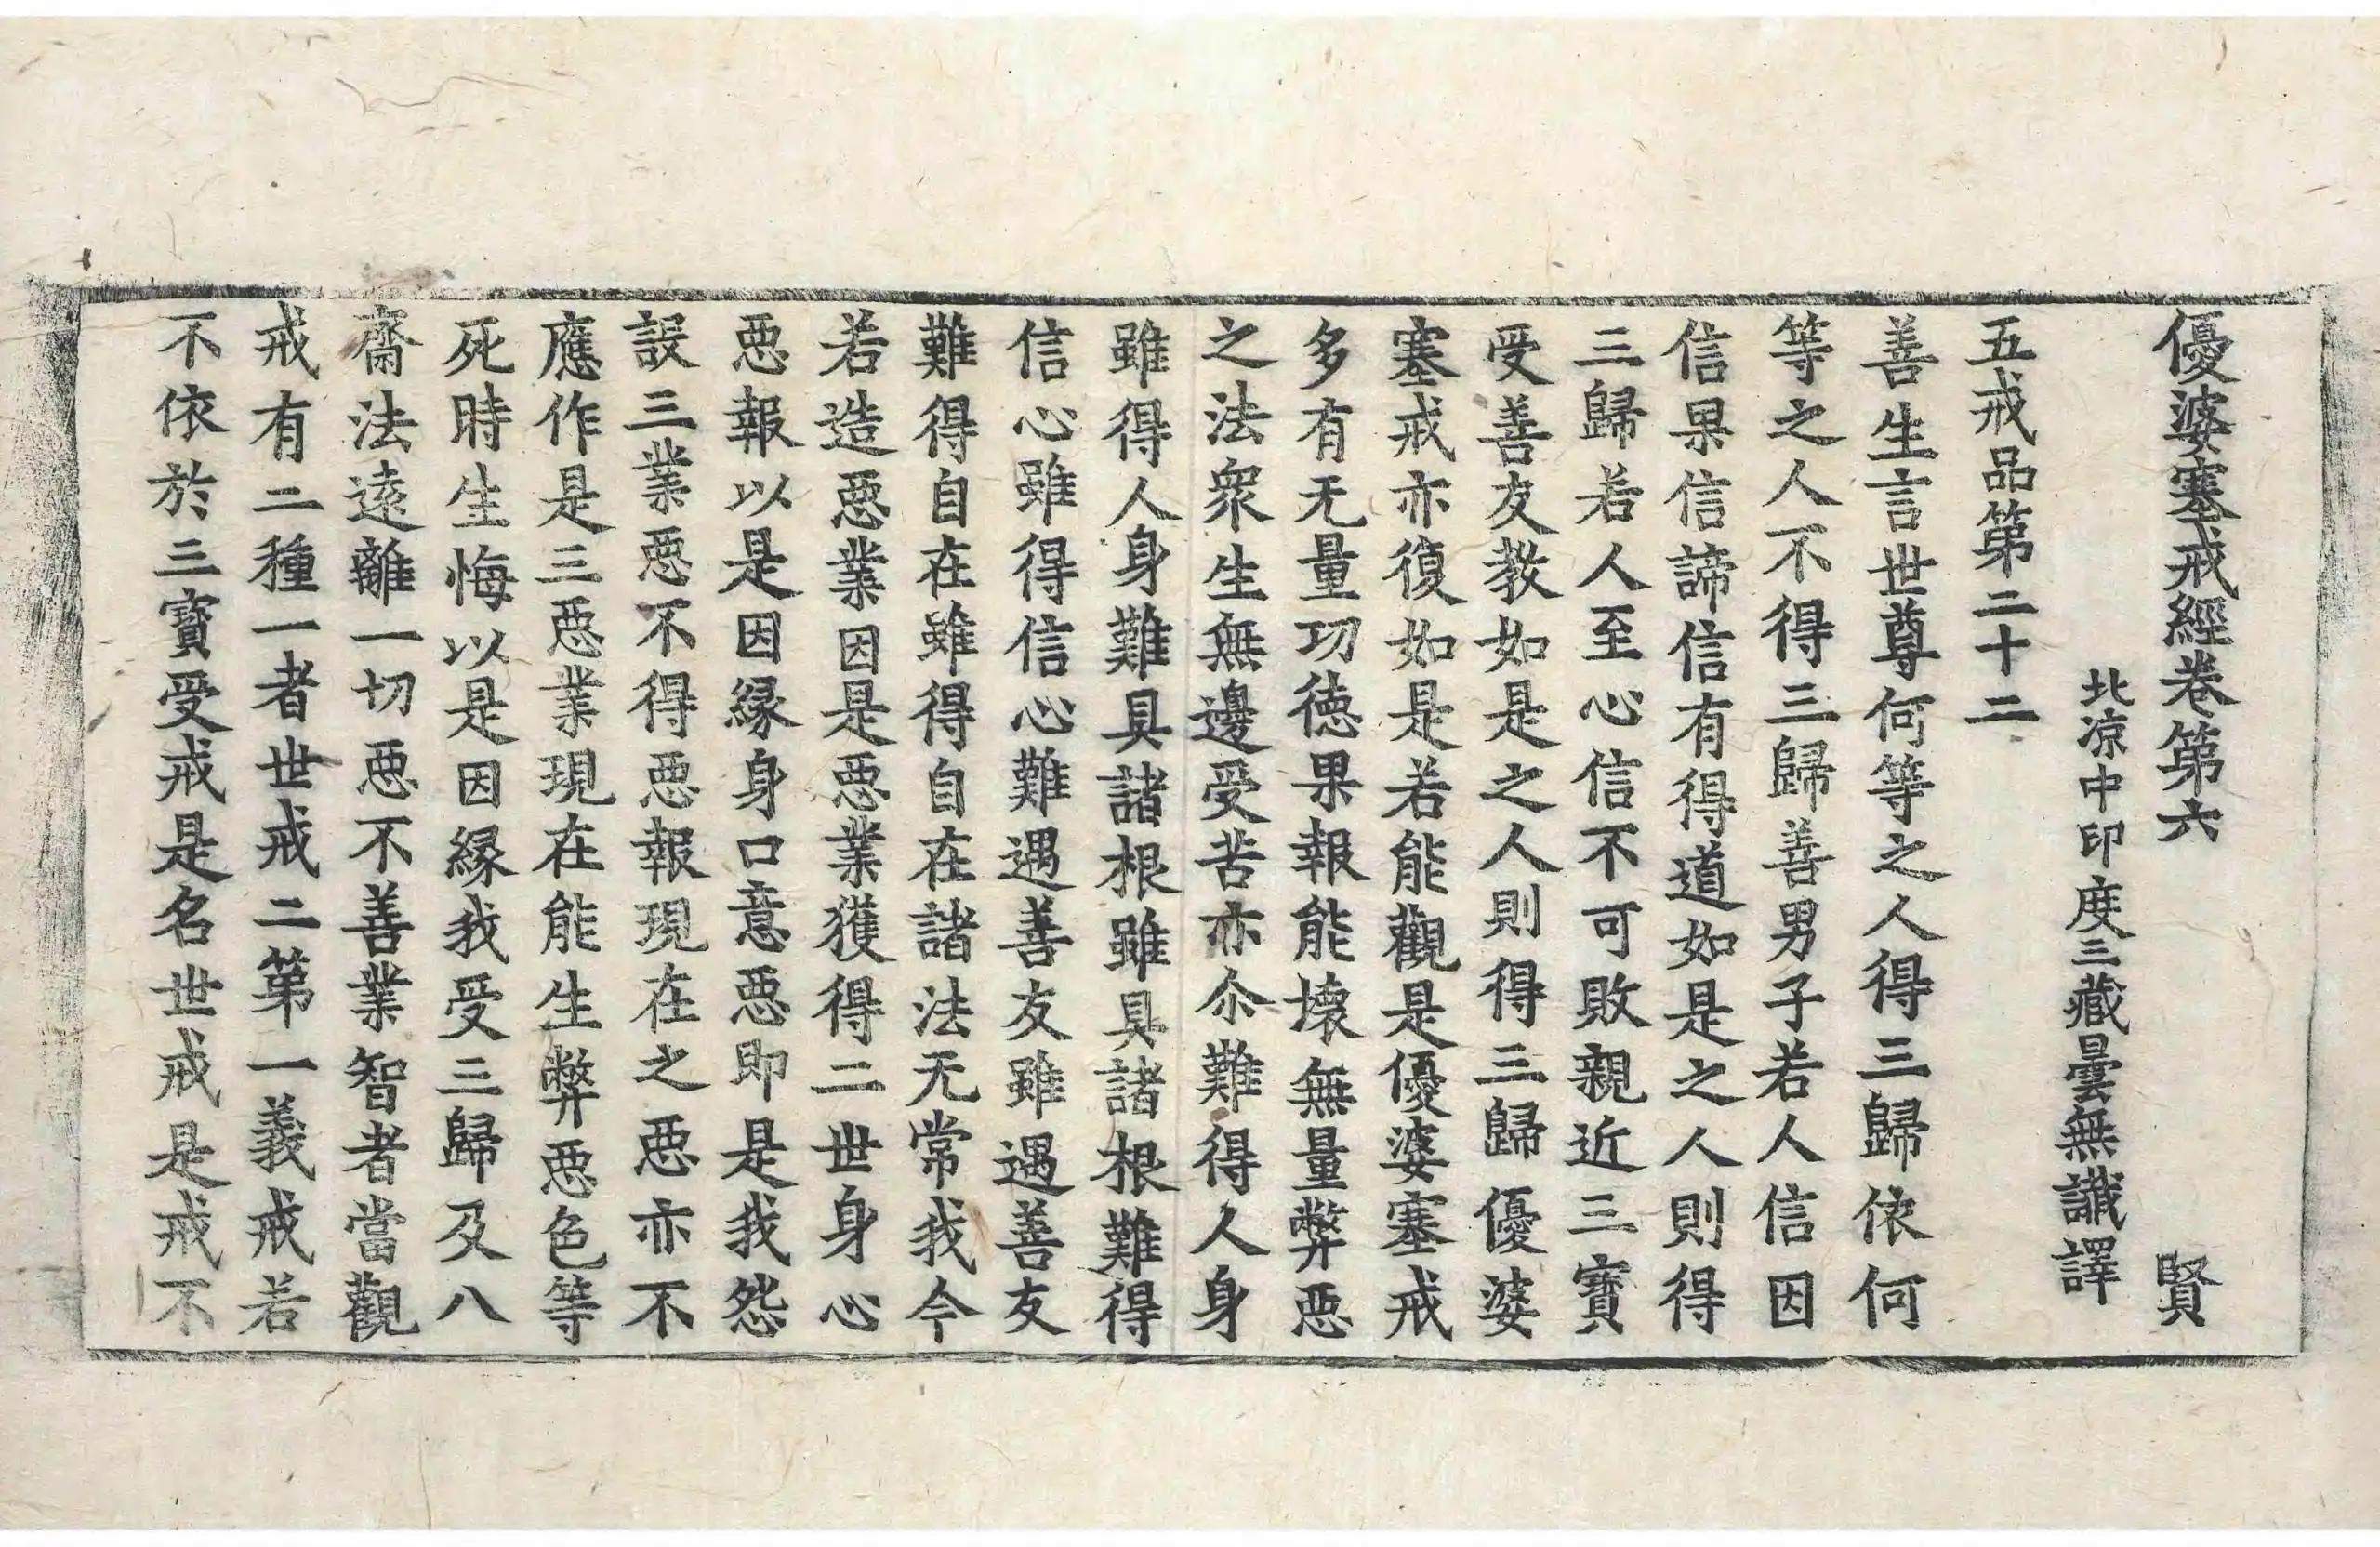 優婆塞戒經卷第六　賢
北涼中印度三藏曇無讖譯
五戒品第二十二
善生言世尊何等之人得三歸依何
等之人不得三歸善男子若人信因
信果信諦信有得道如是之人則得
三歸若人至心信不可敗親近三寶
受善友教如是之人則得三歸優婆
塞戒亦復如是若能觀是優婆塞戒
多有无量功德果報能壞無量弊惡
之法衆生無邊受苦亦尒難得人身
雖得人身難具諸根雖具諸根難得
信心雖得信心難遇善友雖遇善友
難得自在雖得自在諸法无常我今
若造惡業因是惡業獲得二世身心
惡報以是因縁身口意惡即是我怨
設三業惡不得惡報現在之惡亦不
應作是三惡業現在能生弊惡色等
死時生悔以是因縁我受三歸及八
齋法遠離一切惡不善業智者當觀
戒有二種一者世戒二第一義戒若
不依於三寶受戒是名世戒是戒不